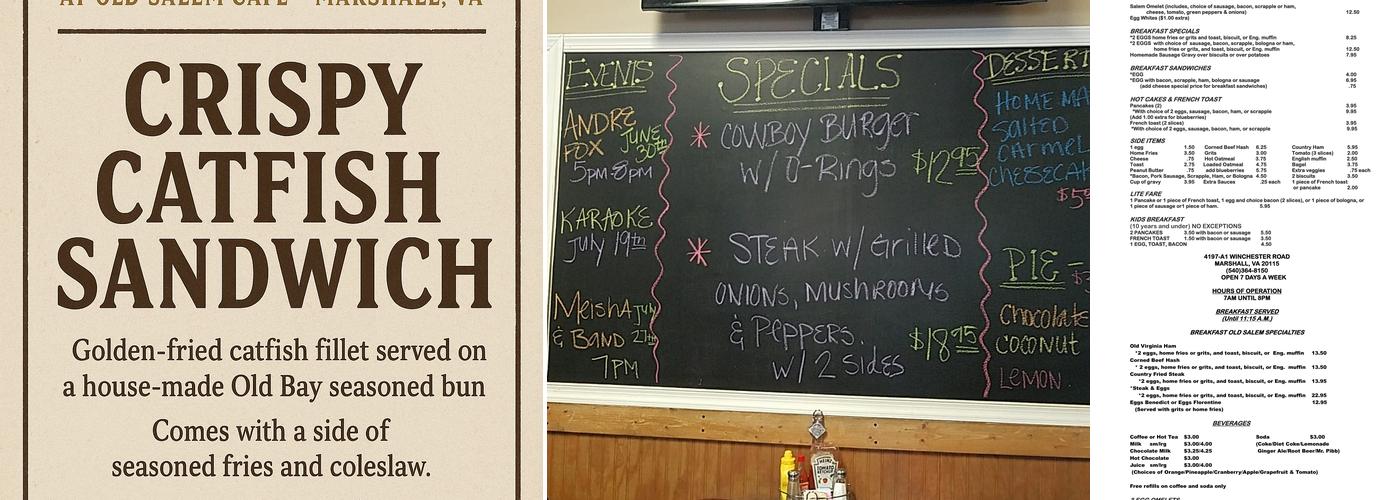 AT OLD SALEM CAFE MARSHALL, VA
CRISPY
CATFISH
SANDWICH
Golden-fried catfish fillet served on
a house-made Old Bay seasoned bun
Comes with a side of
seasoned fries and coleslaw.
EVENTS
ANDRE
FOX JUNE
30th
5pm-8pm
KARAOKE
July 19th
Meisha July
& BAND 27th
7PM
SPECIALS
* COWBOY BURGER
w/ O-Rings $12.95
* STEAK w/ Grilled
ONIONS, MUSHROOMS
& PEPPERS. $18.95
w/ 2 Sides
DESSERT
HOME MA
Salted
CARMEL
CHEESECAK
$5
PIE -
Chocolate
COCONUT
LEMON.
HEINZ
TOMATO
KETCHUP
Salem Omelet (includes, choice of sausage, bacon, scrapple or ham,
cheese, tomato, green peppers & onions) 12.50
Egg Whites ($1.00 extra)
BREAKFAST SPECIALS
*2 EGGS home fries or grits and toast, biscuit, or Eng. muffin 8.25
*2 EGGS with choice of sausage, bacon, scrapple, bologna or ham,
home fries or grits, and toast, biscuit, or Eng. muffin 12.50
Homemade Sausage Gravy over biscuits or over potatoes 7.95
BREAKFAST SANDWICHES
*EGG 4.00
*EGG with bacon, scrapple, ham, bologna or sausage 6.95
(add cheese special price for breakfast sandwiches) .75
HOT CAKES & FRENCH TOAST
Pancakes (2) 3.95
*With choice of 2 eggs, sausage, bacon, ham, or scrapple 9.95
(Add 1.00 extra for blueberries)
French toast (2 slices) 3.95
*With choice of 2 eggs, sausage, bacon, ham, or scrapple 9.95
SIDE ITEMS
1 egg 1.50 Corned Beef Hash 6.25 Country Ham 5.95
Home Fries 3.50 Grits 3.00 Tomato (3 slices) 2.00
Cheese .75 Hot Oatmeal 3.75 English muffin 2.50
Toast 2.75 Loaded Oatmeal 4.75 Bagel 3.75
Peanut Butter .75 add blueberries 5.75 Extra veggies .75 each
*Bacon, Pork Sausage, Scrapple, Ham, or Bologna 4.50 2 biscuits 3.50
Cup of gravy 3.95 Extra Sauces .25 each 1 piece of French toast
or pancake 2.00
LITE FARE
1 Pancake or 1 piece of French toast, 1 egg and choice bacon (2 slices), or 1 piece of bologna, or
1 piece of sausage or1 piece of ham. 5.95
KIDS BREAKFAST
(10 years and under) NO EXCEPTIONS
2 PANCAKES 3.50 with bacon or sausage 5.50
FRENCH TOAST 1.50 with bacon or sausage 3.50
1 EGG, TOAST, BACON 4.50
4197-A1 WINCHESTER ROAD
MARSHALL, VA 20115
(540)364-8150
OPEN 7 DAYS A WEEK
HOURS OF OPERATION
7AM UNTIL 8PM
BREAKFAST SERVED
(Until 11:15 A.M.)
BREAKFAST OLD SALEM SPECIALTIES
Old Virginia Ham
*2 eggs, home fries or grits, and toast, biscuit, or Eng. muffin 13.50
Corned Beef Hash
* 2 eggs, home fries or grits, and toast, biscuit, or Eng. muffin 13.50
Country Fried Steak
*2 eggs, home fries or grits, and toast, biscuit, or Eng. muffin 13.95
*Steak & Eggs
*2 eggs, home fries or grits, and toast, biscuit, or Eng. muffin 22.95
Eggs Benedict or Eggs Florentine 12.95
(Served with grits or home fries)
BEVERAGES
Coffee or Hot Tea $3.00 Soda $3.00
Milk sm/lrg $3.00/4.00 (Coke/Diet Coke/Lemonade
Chocolate Milk $3.25/4.25 Ginger Ale/Root Beer/Mr. Pibb)
Hot Chocolate $3.00
Juice sm/lrg $3.00/4.00
(Choices of Orange/Pineapple/Cranberry/Apple/Grapefruit & Tomato)
Free refills on coffee and soda only